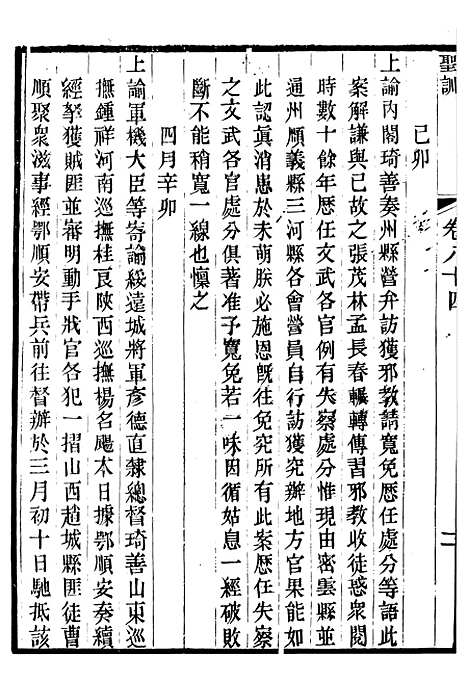 聖訓
卷八十四
二
己卯
上諭內閣琦善奏州縣營弁訪獲邪教請寬免歷任處分等語此
案解謙與已故之張茂林孟長春輾轉傳習邪教收徒惑衆閱
時數十餘年歷任文武各官例有失察處分惟現由密雲縣並
通州順義縣三河縣各會營員自行訪獲究辦地方官果能如
此認眞消患於未萌朕必施恩旣往免究所有此案歷任失察
之文武各官處分俱著准予寬免若一味因循姑息一經破敗
斷不能稍寬一線也懍之
四月辛卯
上諭軍機大臣等寄諭綏遠城將軍彥德直隸總督琦善山東巡
撫鍾祥河南巡撫桂良陝西巡撫楊名颺本日據鄂順安奏續
經拏獲賊匪並審明動手戕官各犯一摺山西趙城縣匪徒曹
順聚衆滋事經鄂順安帶兵前往督辦於三月初十日馳抵該